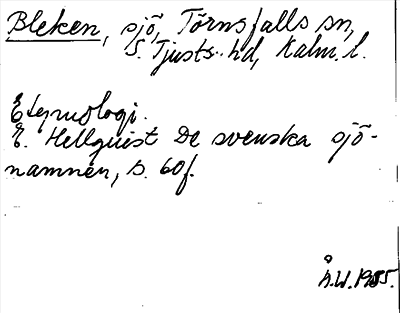 Bleken, sjö, Törnsfalls sn,
S. Tjusts hd, Kalm. l.
Etymologi.
E. Hellquist De svenska sjö-
namnen, s. 60f.
Å.W. 1955.